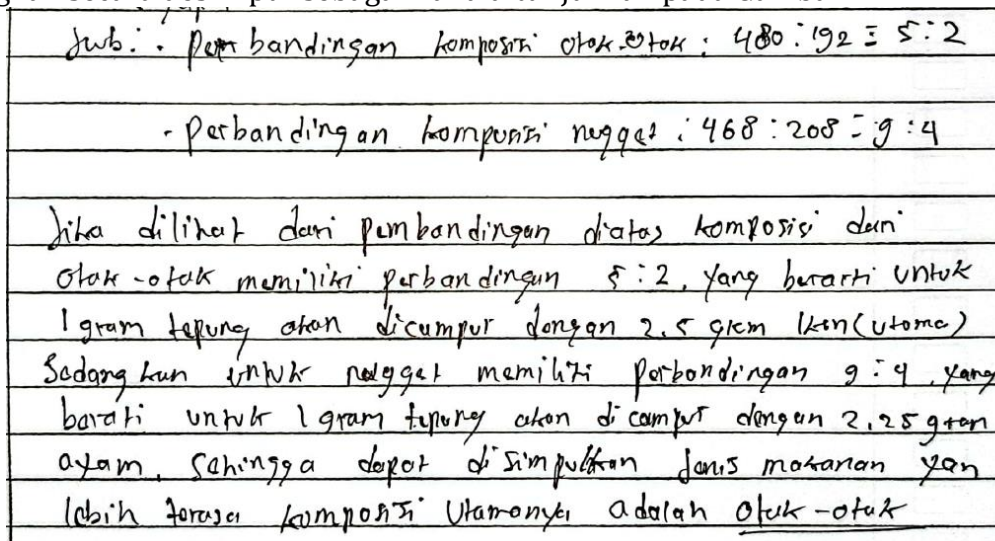 Jwb: · Perbandingan komposisi otak-otak : 480 : 192 = 5 : 2
- Perbandingan komposisi nugget : 468 : 208 = 9 : 4
Jika dilihat dari pembandingan diatas komposisi dari
otak-otak memiliki perbandingan 5 : 2, yang berarti untuk
1 gram tepung akan dicampur dengan 2.5 gram ikan (utama)
Sedangkan untuk nugget memiliki perbandingan 9 : 4, yang
berarti untuk 1 gram tepung akan dicampur dengan 2,25 gram
ayam, Sehingga dapat disimpulkan Jenis makanan yan
lebih terasa komposisi Utamanya adalah otak-otak